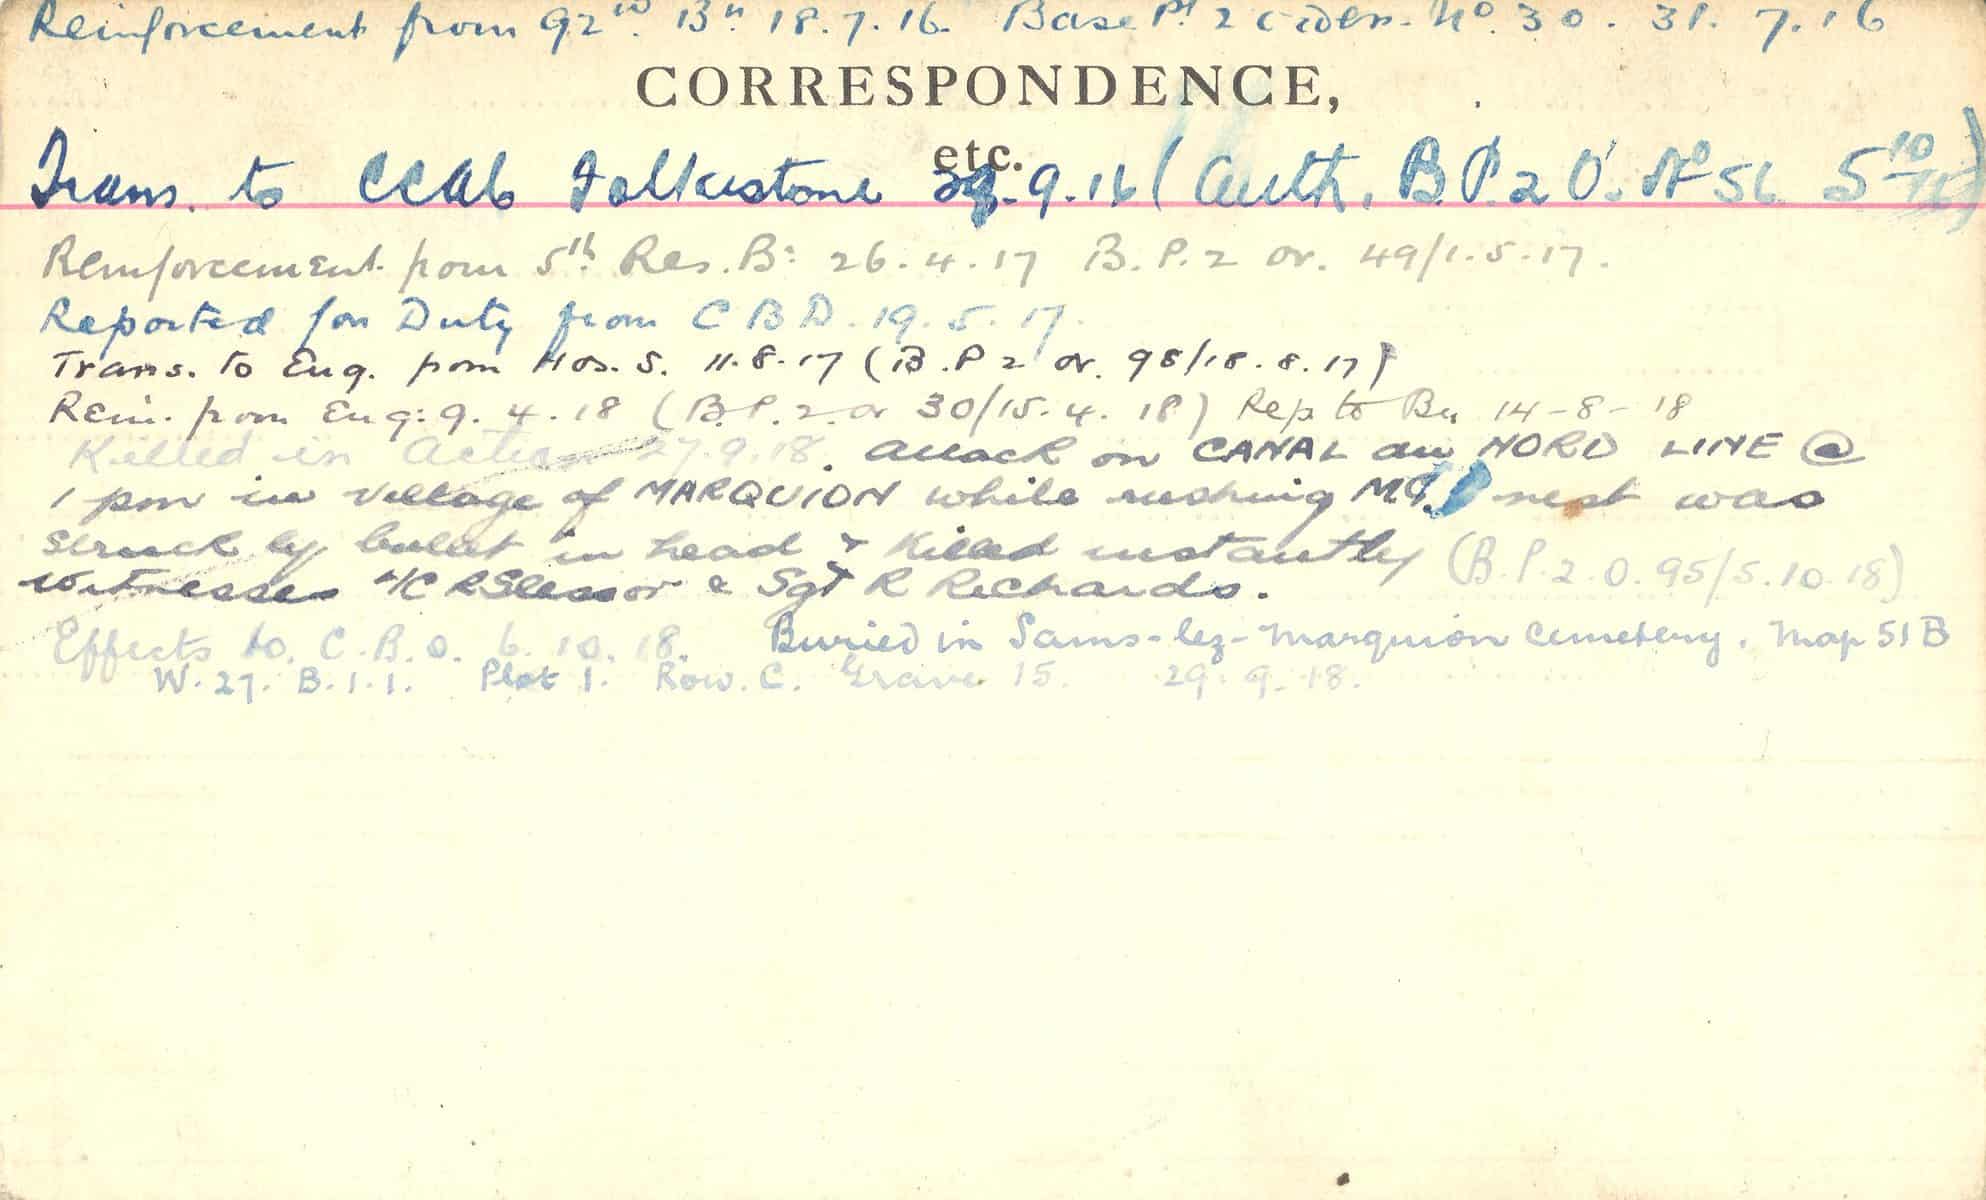 Reinforcement from 92nd. Bn. 18.7.16. Base Pt 2 order No. 30. 31. 7. 16
CORRESPONDENCE,
etc.
Trans. to CCAC Folkestone 29.9.16 (Auth. B.P.2 O. No 56 5 10/16)
Reinforcement from 5th Res. Bn: 26.4.17 B.P.2 or. 49/1.5.17.
Reported for Duty from C B D. 19.5.17.
Trans. to Eng. from Hos. S. 11.8.17 (B.P 2 or. 98/18.8.17)
Rein. from Eng: 9.4.18 (B.P.2 or 30/15.4.18) Rep to Bn 14-8-18
Killed in Action 27.9.18. attack on CANAL du NORD LINE @
1 pm in village of MARQUION while rushing MG. nest was
struck by bullet in head & killed instantly (B.P.2.O.95/5.10.18)
witnesses L/C R Slessor & Sgt R Richards.
Effects to. C.B.O. 6.10.18. Buried in Sains-lez-Marquion Cemetery. Map 51 B
W.27. B.1.1. Plot 1. Row. C. Grave 15. 29.9.18.